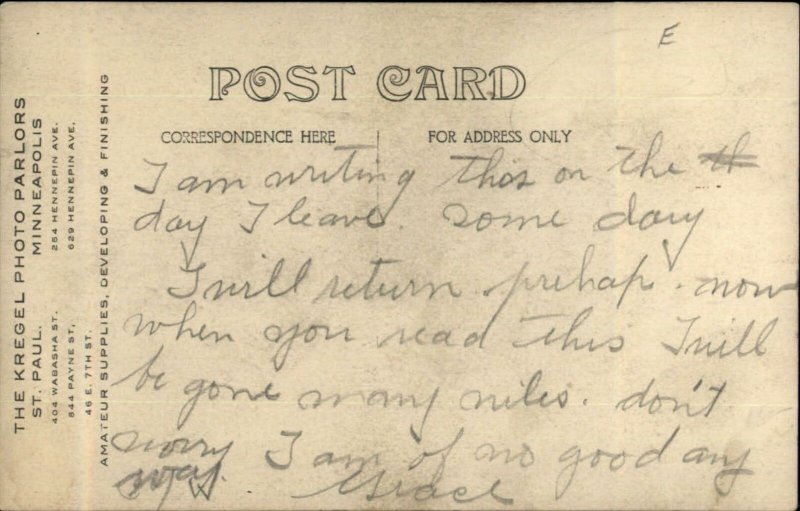 E
POST CARD
CORRESPONDENCE HERE
FOR ADDRESS ONLY
I am writing this on the th
day I leave. Some day
I will return. prehap. now
when you read this I will
be gone many miles. don't
worry I am of no good any
way.
Grace
THE KREGEL PHOTO PARLORS
ST. PAUL. MINNEAPOLIS
404 WABASHA ST. 254 HENNEPIN AVE.
844 PAYNE ST. 629 HENNEPIN AVE.
46 E. 7TH ST.
AMATEUR SUPPLIES, DEVELOPING & FINISHING